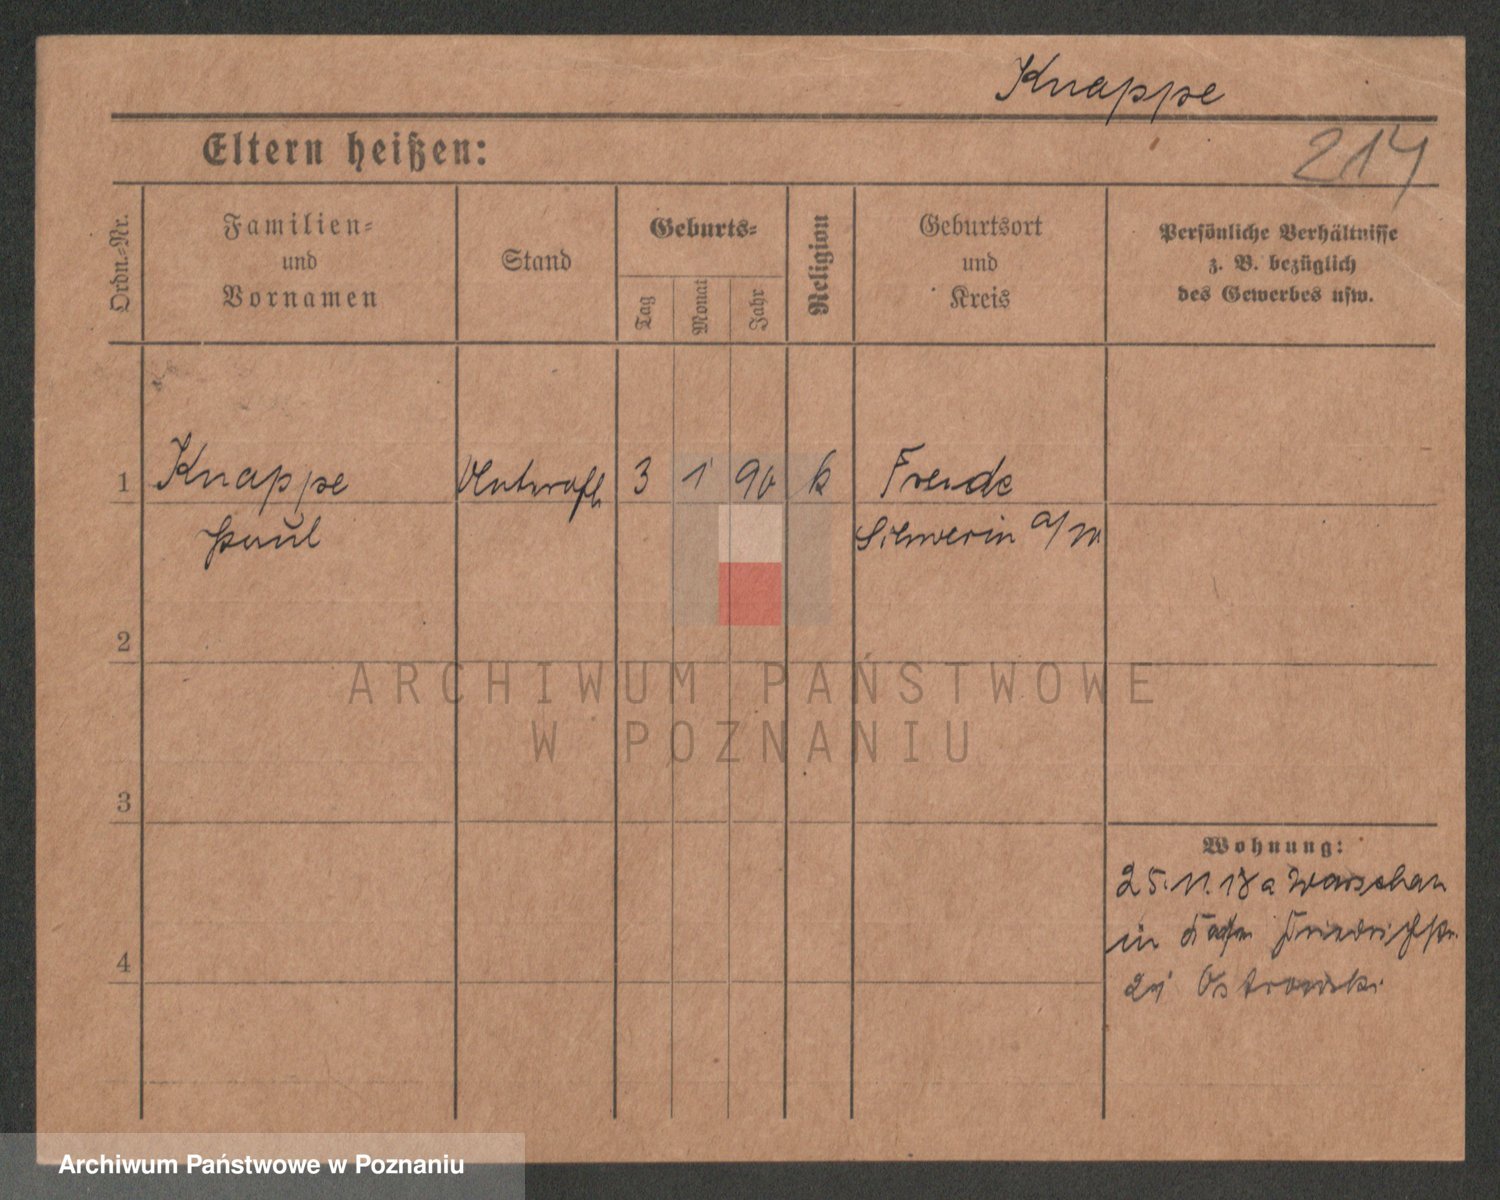 Knappe
Eltern heißen:
214
Ordn.-Nr.
Familien-
und
Vornamen
Stand
Geburts-
Tag
Monat
Jahr
Religion
Geburtsort
und
Kreis
Persönliche Verhältnisse
z. B. bezüglich
des Gewerbes usw.
1
Knappe
3 1 90 k
Paul
Schwerin a/W.
2
ARCHIWUM PAŃSTWOWE
W POZNANIU
3
Wohnung:
25.11.18 a Warschau
in Friedrichstr.
4
Ostrowski
Archiwum Państwowe w Poznaniu